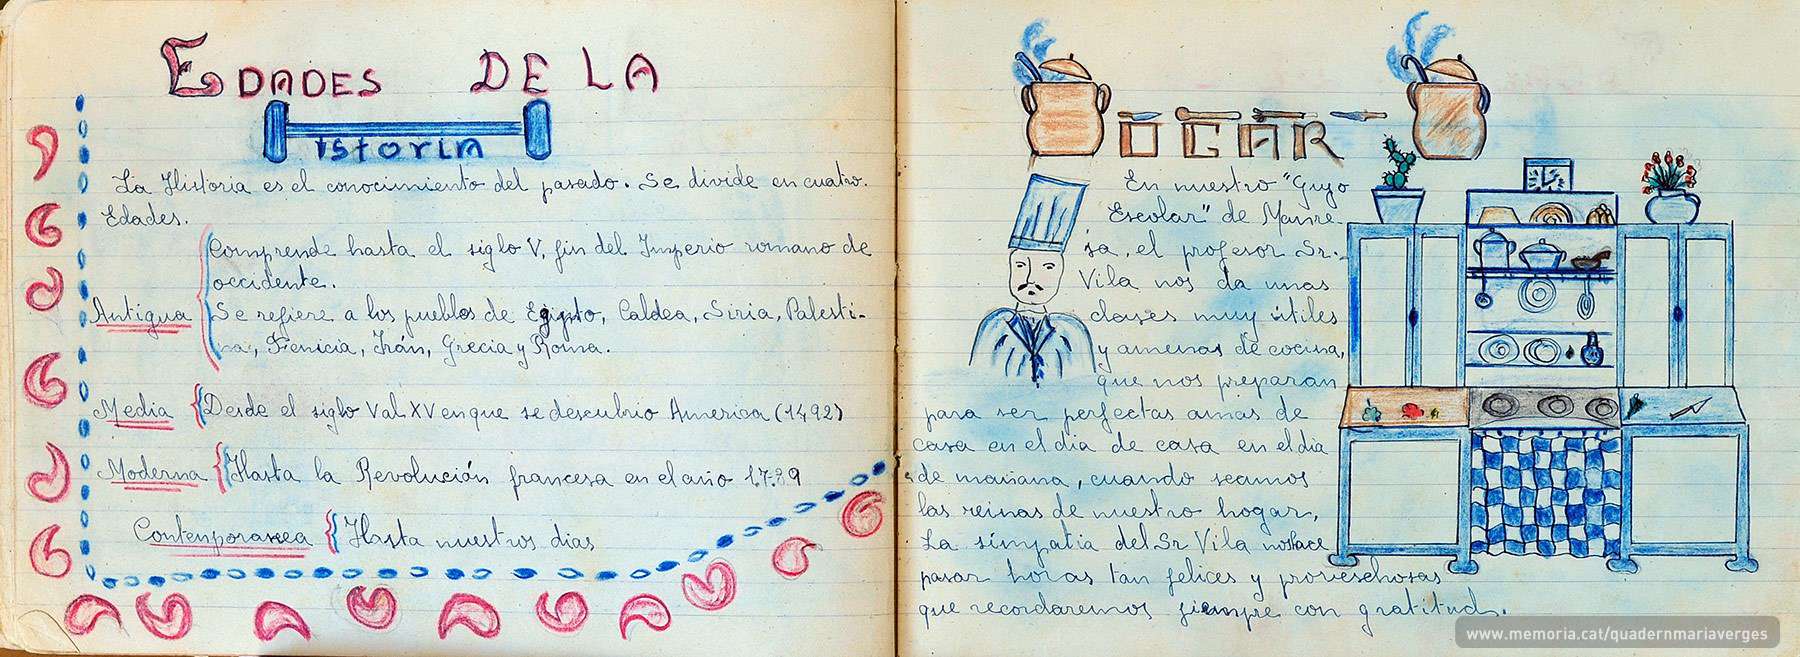 EDADES DE LA
HistoriA
La Historia es el conocimiento del pasado. Se divide en cuatro
Edades.
Comprende hasta el siglo V, fin del Imperio romano de
occidente.
Antigua { Se refiere a los pueblos de Egipto, Caldea, Siria, Palesti-
na, Fenicia, Irán, Grecia y Roma.
Media { Desde el siglo V al XV en que se descubrio America (1492)
Moderna { Hasta la Revolución francesa en el año 1789
Contemporanea { Hasta nuestros dias
HOGAR
En nuestro "Grupo
Escolar" de Manre-
sa, el profesor Sr.
Vila nos da unas
clases muy útiles
y amenas de cocina,
que nos preparan
para ser perfectas amas de
casa en el dia de casa en el dia
de mañana, cuando seamos
las reinas de nuestro hogar,
La simpatia del Sr Vila nos hace
pasar horas tan felices y provechosas
que recordaremos siempre con gratitud.
www.memoria.cat/quadernmariaverges